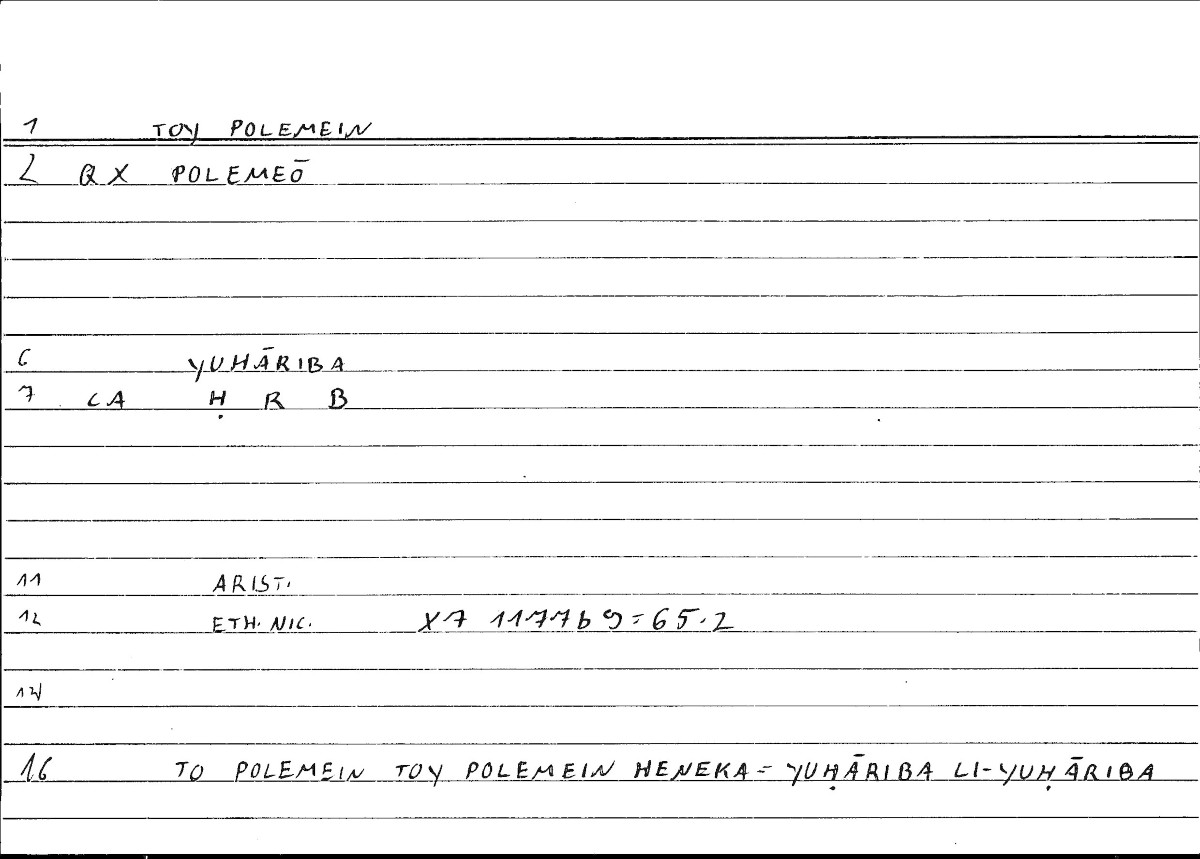 1 TOY POLEMEIN
2 Q X POLEMEŌ
6 YUHĀRIBA
7 CA Ḥ R B
11 ARIST.
12 ETH. NIC. X7 1177b9=65.2
14
16 TO POLEMEIN TOY POLEMEIN HENEKA = YUḤĀRIBA LI-YUḤĀRIBA